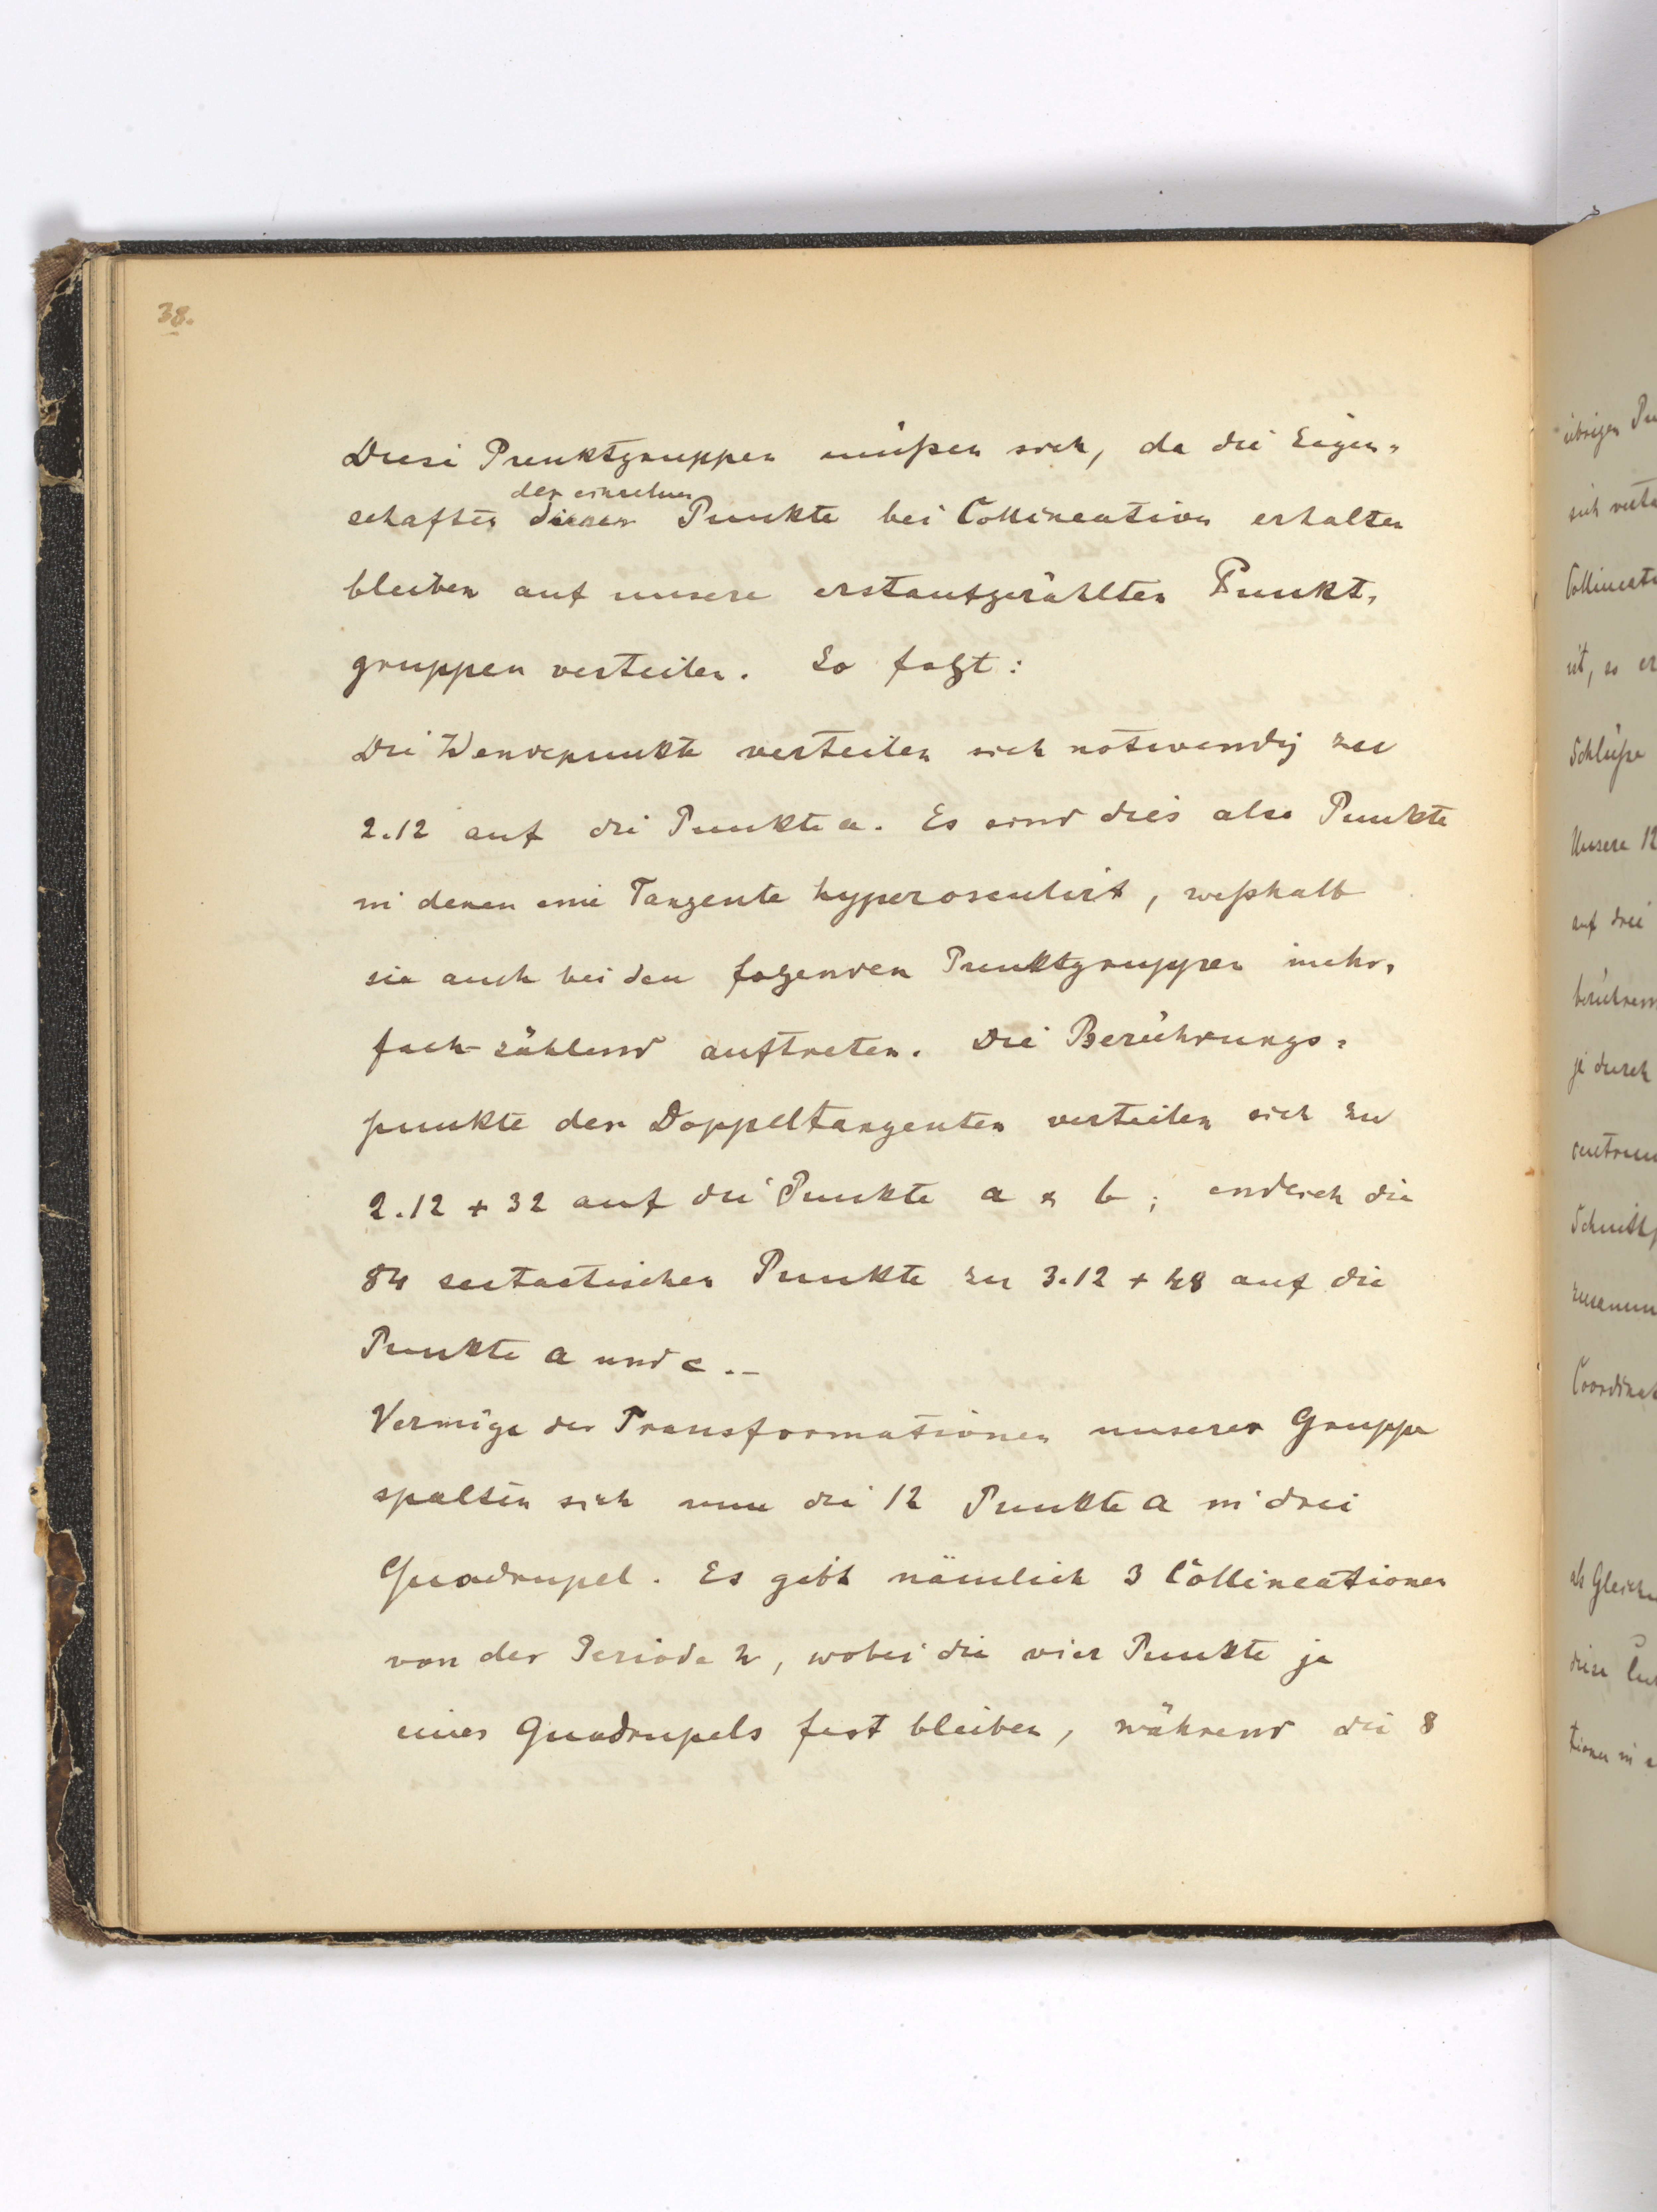 38.
Diese Punktgruppen müßen sich, da die Eigen-
der einzelnen
schaften dieser Punkte bei Collineation erhalten
bleiben auf unsere erstaufgezählten Punkt-
gruppen verteilen. So folgt:
Die Wendepunkte verteilen sich notwendig zu
2.12 auf die Punkte a. Es sind dies also Punkte
in denen eine Tangente hyperosculirt, weßhalb
sie auch bei den folgenden Punktgruppen mehr-
fach zählend auftreten. Die Berührungs-
punkte der Doppeltangenten verteilen sich zu
2.12 + 32 auf die Punkte a & b; endlich die
84 sextactischen Punkte zu 3.12 + 48 auf die
Punkte a und c. –
Vermöge der Transformationen unserer Gruppe
spalten sich nun die 12 Punkte a in drei
Quadrupel. Es gibt nämlich 3 Collineationen
von der Periode 2, wobei die vier Punkte je
eines Quadrupels fest bleiben, während die 8
übrigen
Collineat
ist, so er
Schlüße
Unsere 12
auf drei
je durch
Coordinat
als Gleich